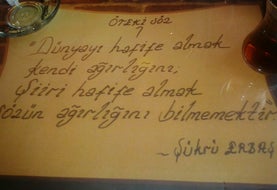 ÖTEKİ SÖZ
"Dünyayı hafife almak
kendi ağırlığını,
Şiiri hafife almak
sözün ağırlığını bilmemektir.
~ Şükrü ERBAŞ